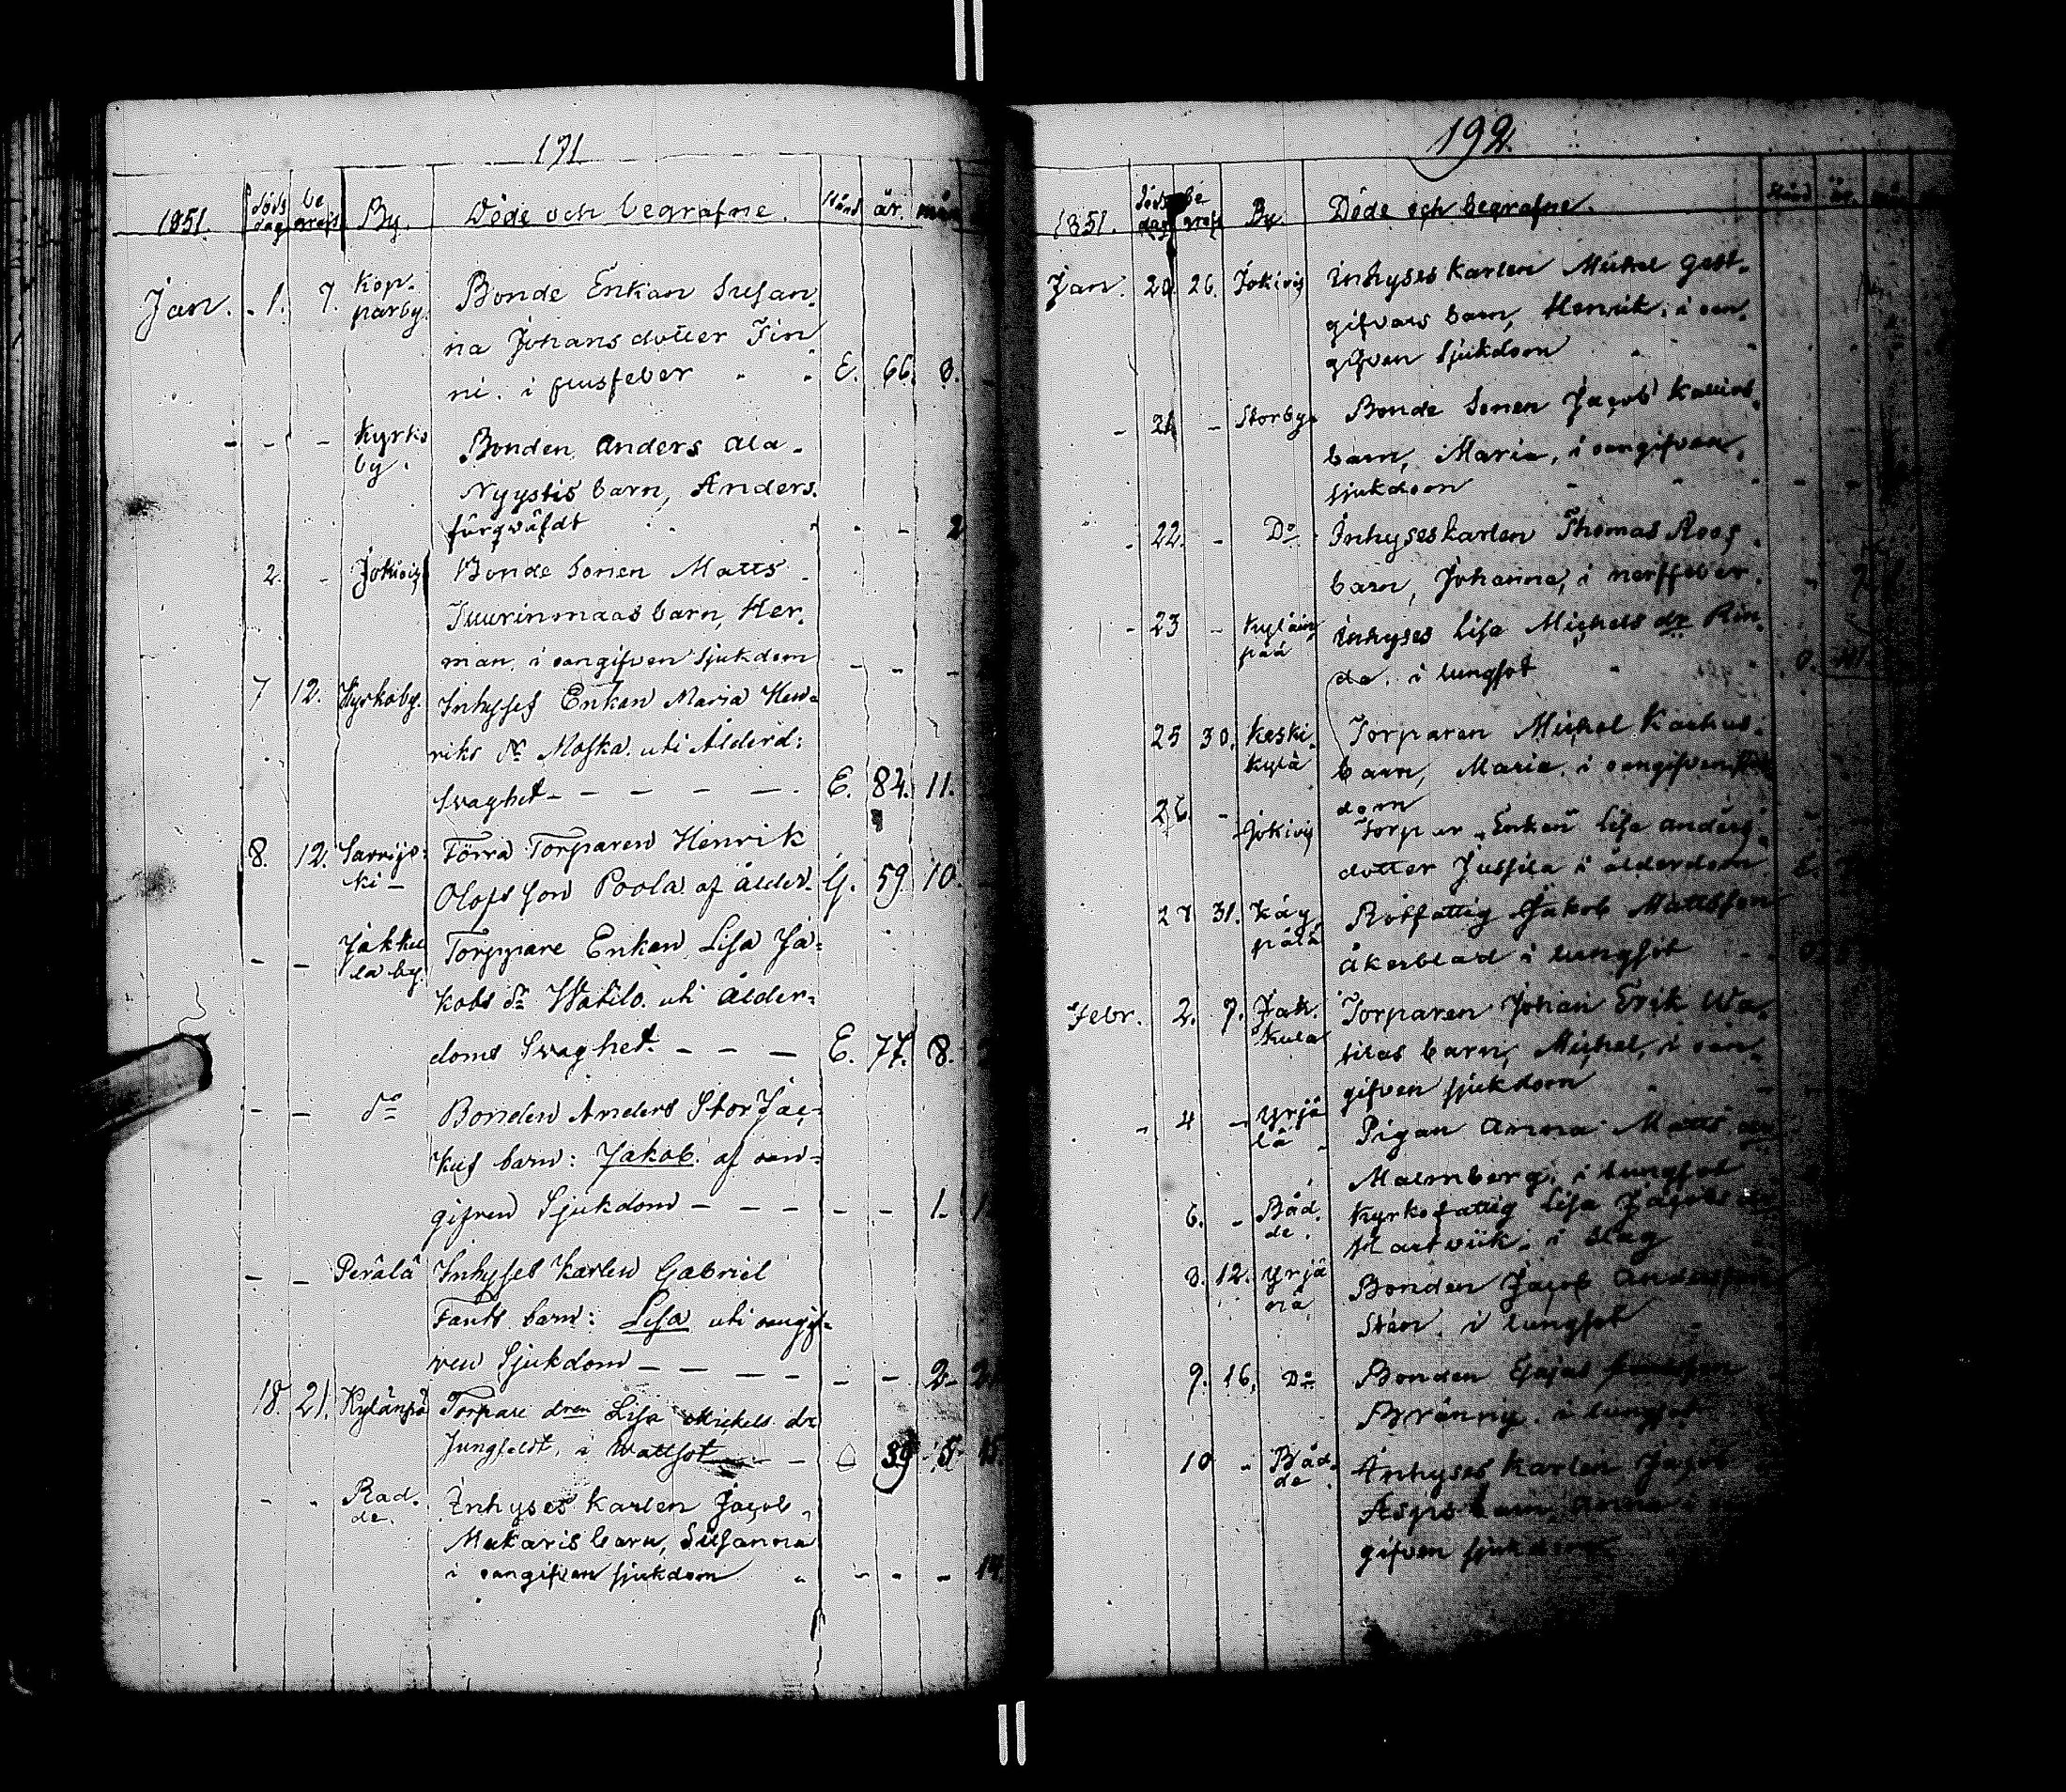 191
1851. döds dag be grafd By. Döde och begrafne. Stånd år. mån
Jan. 1. 7. Kop-
parby. Bonde Enkan Susan
na Johansdotter Fin
ni. i flussfeber E. 66. 8.
- - - Kyrko
by. Bonden Anders Ala-
Nyystis barn, Anders.
förqwäfdt - - 2
2. - Jokivig Bonde Sonen Matts
Juurinmaas barn, Her-
man, i oangifven sjukdom - - -
7 12. Kyrkoby. Inhyses Enkan Maria Hen-
riks dr Moska. uti Ålderd:
Svaghet - - - - - E. 82. 11.
8. 12. Sarvijo:
ki - Förra Torparen Henrik
Olofsson Poola af ålder. G. 59 10. -
- - Jakku
la by. Torppare Enkan Lisa Ja=
kobs dr Watilo. uti ålder=
doms Svaghet. - - - E. 77. 8.
- - do Bonden Anders Stor Jac=
kus barn: Jakob. af oan=
gifven Sjukdom - - - - - 1. 1
- - Perälä Inhyses Karlen Gabriel
Fants barn: Lisa uti oangif=
ven Sjukdom - - - - - - 2- 2.
18. 21. Kylänpä Torpare dren Lisa Mickels dr
Jungfeldt, i Wattsot - - 39 5. 15.
- - Rad-
de. Inhyses karlen Jacob
Mukaris barn, Susanna
i oangifven sjukdom - - - 14.
192.
1851. döds dag be grafd By. Döde och begrafne. Stånd år. mån
Jan. 20 26. Jokivig Inhyses karlen Michel Gest-
gifvars barn, Henrik, i oan-
gifven sjukdom
- 21 - Storby. Bonde Sonen Jacob
barn, Maria, i oangifven
sjukdom - - - - -
- 22. - Do Inhyses karlen Thomas Roos
barn, Johanna, i nerffeber.
- 23 - Kyläin
pää Inhyses Lisa Michels dr Rin-
da. i lungsot O.
25 30. Keski-
kylä Torparen Michel
barn, Maria. i oangifven
dom
26. - Jokivig Torpar Enkan Lisa Anders
dotter Jussila i ålderdom E.
27 31. Käy
pälä Rotfattig Jakob Mattsson
Åkerblad i lungsot
Febr. 2. 7. Jak.
kula Torparen Johan Erik Wa-
tilas barn, Michel, i oan-
gifven sjukdom
- 4 - Yrjä
lä Pigan Anna Matts dr
Malmberg, i lungsot
6. - Båd
de. Kyrkofattig Lisa
Hartviik. i slag
8. 12. Yrjä
nä Bonden Jacob Andersson
Stén. i lungsot
9. 16. Do Bonden Esajas
Brännig. i lungsot
10 - Båd-
de Inhyses karlen Jacob
barn, Anna i
gifven sjukdom